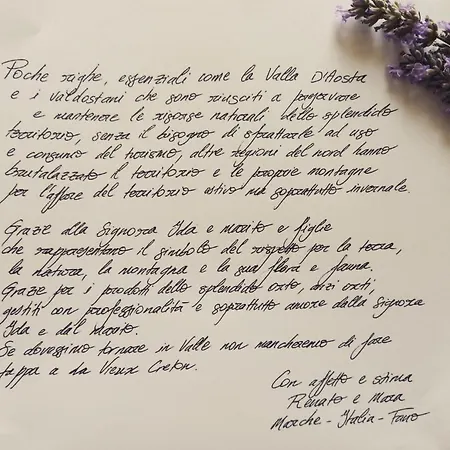 Poche righe, essenziali come la Valla D'Aosta
e i valdostani che sono riusciti a preservare
e mantenere le risorse naturali dello splendido
territorio, senza il bisogno di sfruttarle ad uso
e consumo del turismo, altre regioni del nord hanno
brutalizzato il territorio e le proprie montagne
per l'affare del territorio estivo ma soprattutto invernale.
Graze alla Signora Ida e marito e figlie
che rappresentano il simbolo del rispetto per la terra,
la natura, la montagna e la sua flora e fauna.
Graze per i prodotti dello splendido orto, anzi orti,
gestiti con professionalità e soprattutto amore dalla Signora
Ida e dal Marito.
Se dovessimo tornare in Valle non mancheremo di fare
tappa a da Vieux Creton.
Con affetto e stima
Renato e Mara
Marche - Italia - Fano